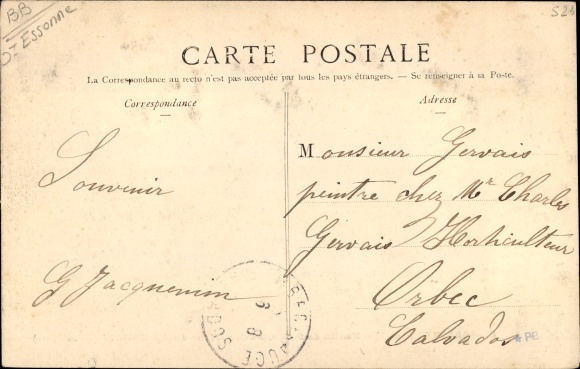 BB
Dt Essonne
CARTE POSTALE
La Correspondance au recto n'est pas acceptée par tous les pays étrangers. — Se renseigner à la Poste.
Correspondance
Souvenir
G Jacquemin
Adresse
Monsieur Gervais
peintre chez Mr Charles
Gervais Horticulteur
Orbec
Calvados
PB